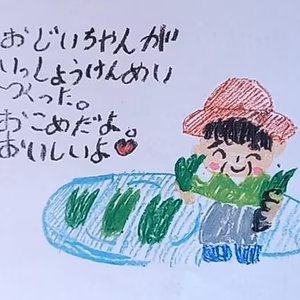 おじいちゃんが
いっしょうけんめい
つくった。
おこめだよ。
おいしいよ♥